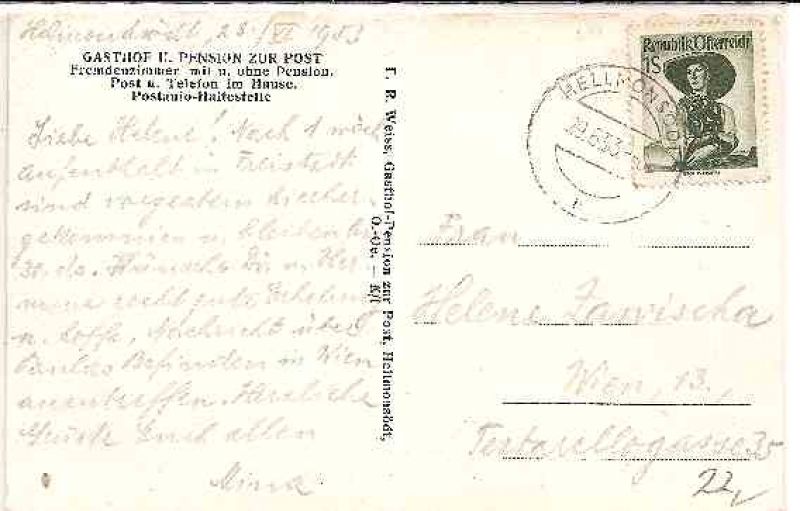 28./VI 1953
GASTHOF U. PENSION ZUR POST
Fremdenzimmer mit u. ohne Pension.
Post u. Telefon im Hause.
Postauto-Haltestelle
Liebe Helene! Nach 1 wöch
Aufenthalt in Freistadt
sind vorgestern hierher
gekommen u. bleiben bis
30. ds. Wünsche Dir u. Her
mine recht gute Erholung
u. hoffe, Nachricht über
Befinden in Wien
anzutreffen. Herzliche
Grüße Euch allen
Mina
F. R. Weiss, Gasthof-Pension zur Post, Hellmonsödt,
O.-Oe. — K/I
Republik Österreich
1S
HELLMONSÖDT
29.6.53
Frau
Helene Zawischa
Wien, 13,
Testarellogasse 35
22,